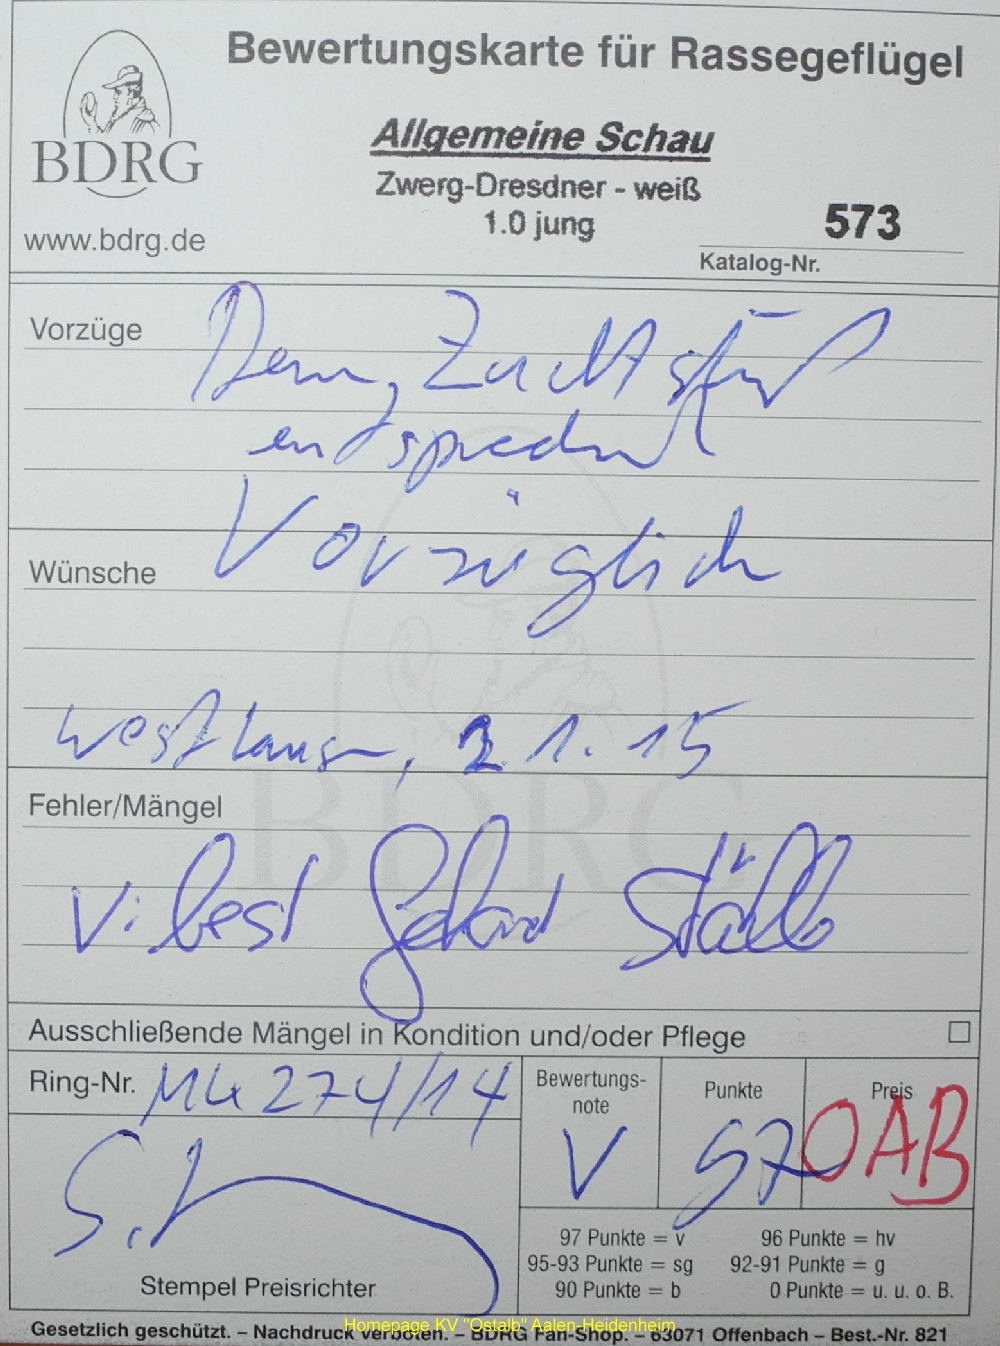 Bewertungskarte für Rassegeflügel
BDRG
www.bdrg.de
Allgemeine Schau
Zwerg-Dresdner - weiß
1.0 jung
573
Katalog-Nr.
Vorzüge
Dem Zuchtstand
entsprechend
Vorzüglich
Wünsche
2.1.15
Fehler/Mängel
V:
Ausschließende Mängel in Kondition und/oder Pflege
Ring-Nr. 274/14
Bewertungs-
note
V
Punkte
97
Preis
OAB
97 Punkte = v
96 Punkte = hv
95-93 Punkte = sg
92-91 Punkte = g
90 Punkte = b
0 Punkte = u. u. o. B.
Stempel Preisrichter
Gesetzlich geschützt. – Nachdruck verboten. – BDRG Fan-Shop. – 63071 Offenbach – Best.-Nr. 821
Homepage KV "Ostalb" Aalen-Heidenheim